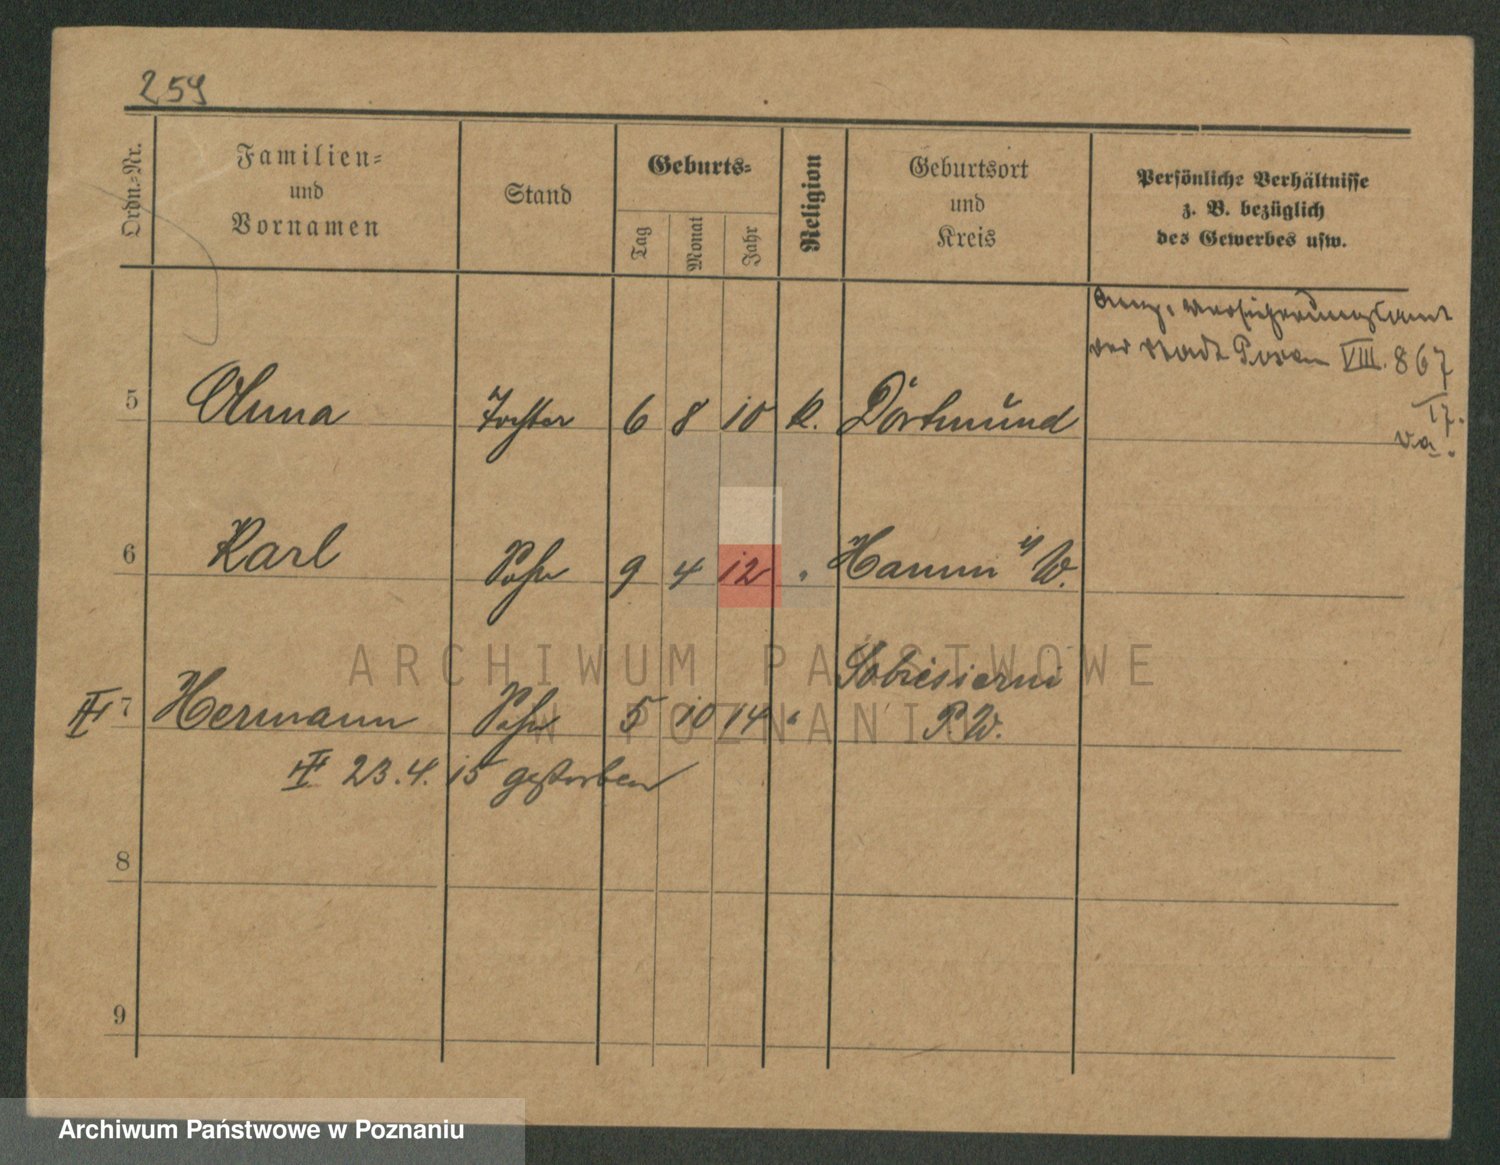 259
Ordn.-Nr.
Familien-
und
Vornamen
Stand
Geburts-
Tag
Monat
Jahr
Religion
Geburtsort
und
Kreis
Persönliche Verhältnisse
z. B. bezüglich
des Gewerbes usw.
Versicherungsamt
der Stadt Posen VIII. 867
17.
5 Anna Tochter 6 8 10 K. Dortmund
6 Karl Sohn 9 4 12 " Hamm i/W.
7 Hermann Sohn 5 10 14 "
P.W.
23.4.15 gestorben
8
9
ARCHIWUM PAŃSTWOWE
W POZNANIU
Archiwum Państwowe w Poznaniu